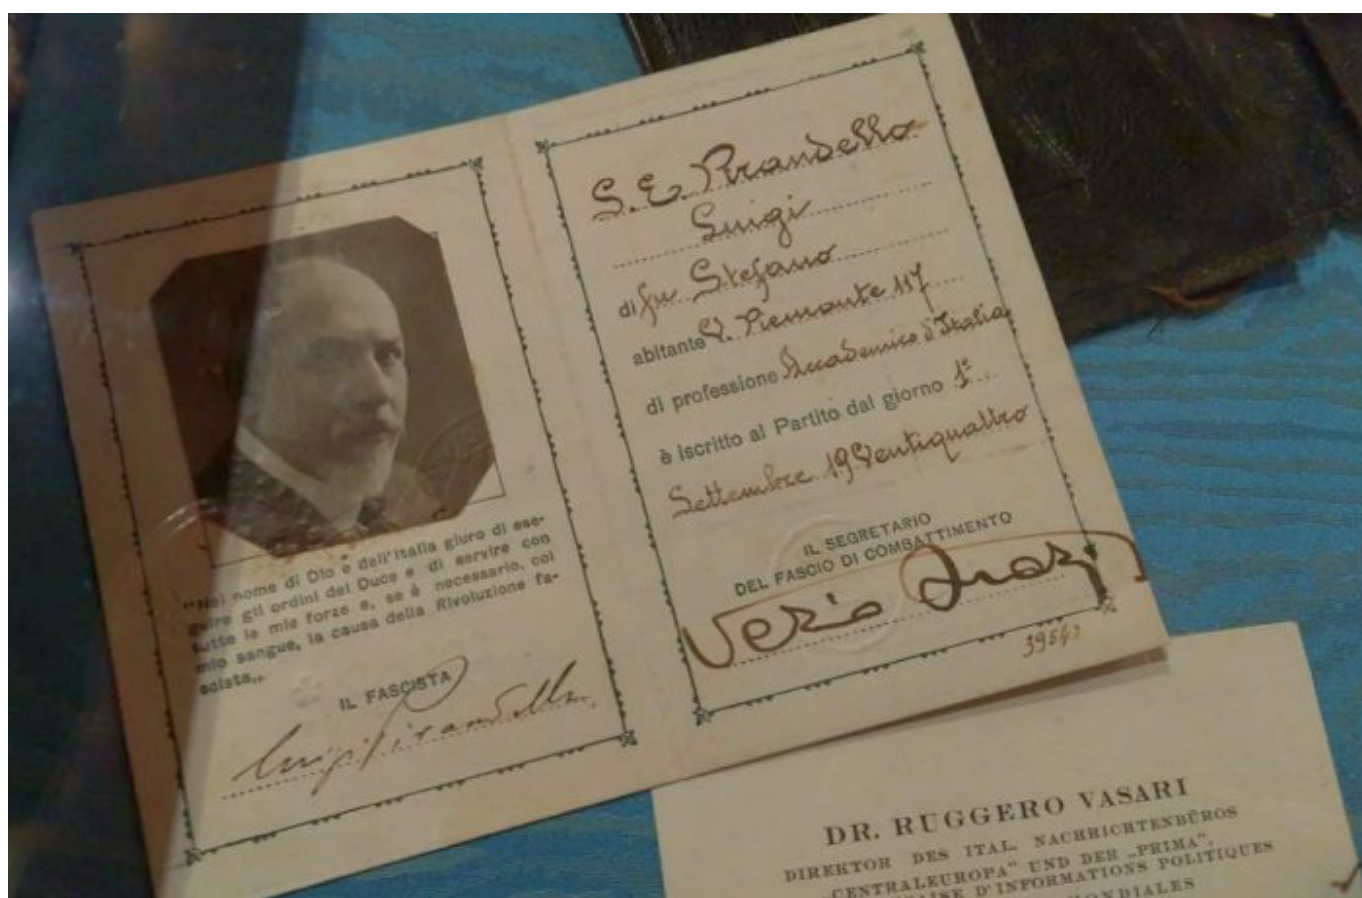 "Nel nome di Dio e dell'Italia giuro di ese-
guire gli ordini del Duce e di servire con
tutte le mie forze e, se è necessario, col
mio sangue, la causa della Rivoluzione fa-
scista„
IL FASCISTA
Luigi Pirandello
S. E. Pirandello
Luigi
di fu Stefano
abitante V. Piemonte 117
di professione Accademico d'Italia
è iscritto al Partito dal giorno 1º
Settembre 19 Ventiquattro
IL SEGRETARIO
DEL FASCIO DI COMBATTIMENTO
DR. RUGGERO VASARI
DIREKTOR DES ITAL. NACHRICHTENBÜROS
CENTRALEUROPA" UND DER „PRIMA",
D'INFORMATIONS POLITIQUES
MONDIALES